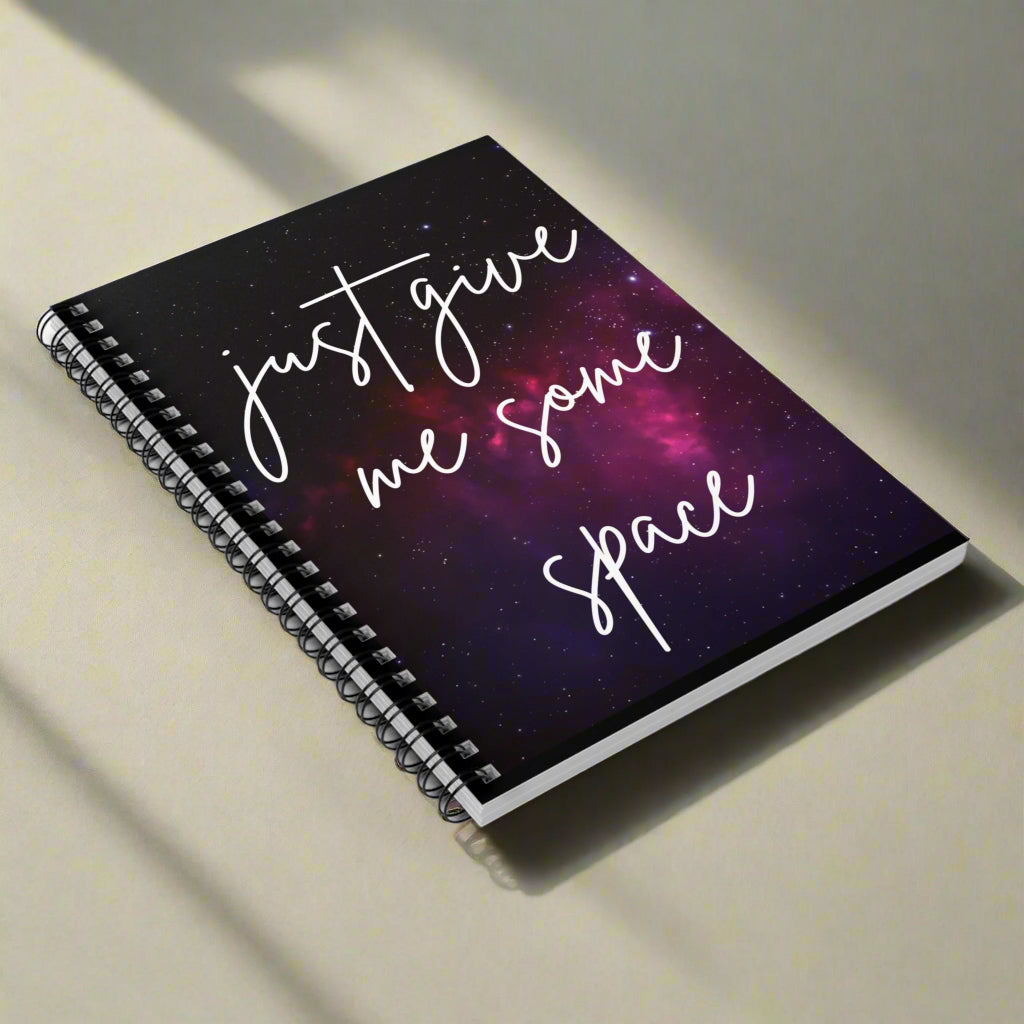 just give
me some
space